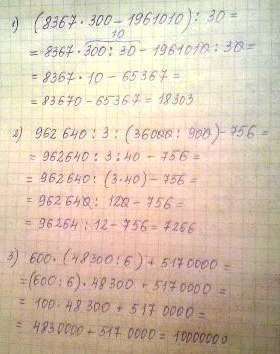 1) (8367·300−1961010):30=
10
=8367·300:30−1961010:30=
=8367·10−65367=
=83670−65367=18303
2) 962640:3:(36000:900)−756=
=962640:3:40−756=
=962640:(3·40)−756=
=962640:120−756=
=96264:12−756=7266
3) 600·(48300:6)+5170000=
=(600:6)·48300+5170000=
=100·48300+5170000=
=4830000+5170000=10000000